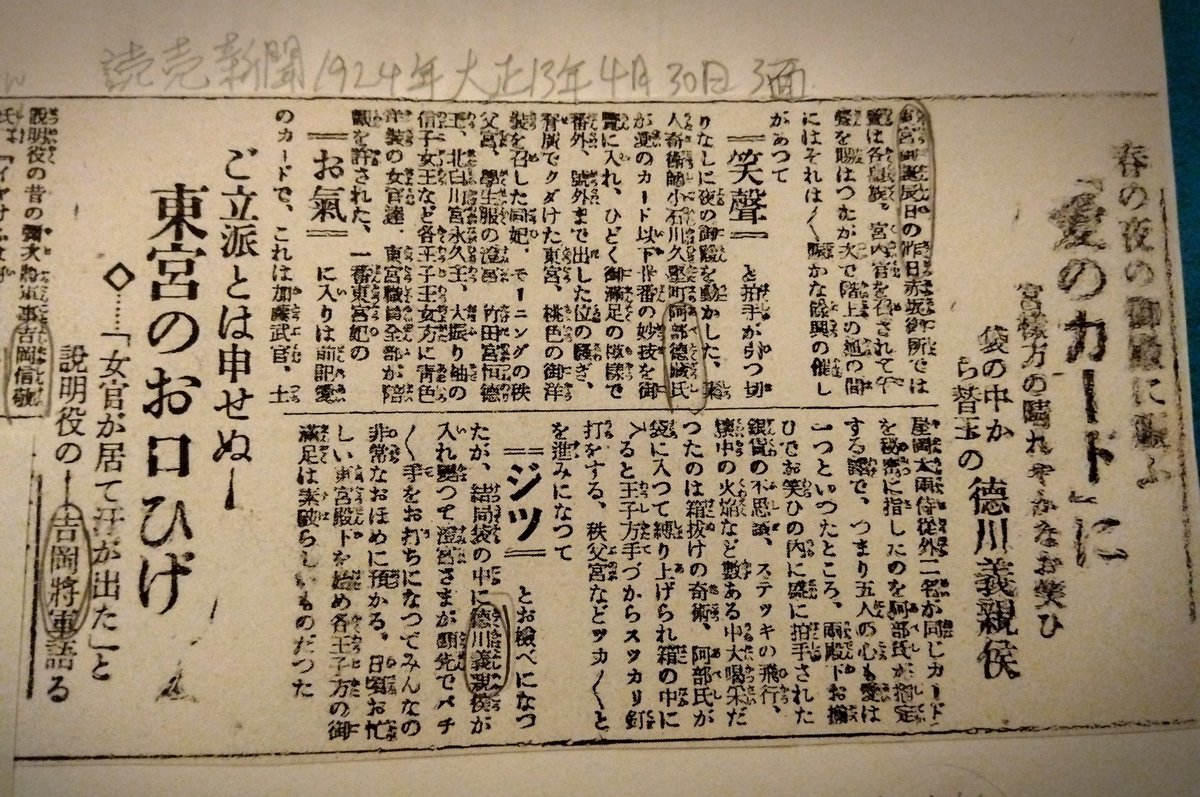 読売新聞 1924年 大正13年 4月30日 3面
春の夜の御殿に
「愛のカード」に
宮様方の晴れやかなお笑ひ
袋の中か
ら替玉の
徳川義親侯
宮御誕辰日の昨日赤坂御所では
は各皇族、宮内官を召されて午
餐を賜はつたが火で階上の
にはそれは〱賑かな餘興の催し
があつて
笑聲
と拍手がらつ切
りなしに夜の御殿を動かした、素
人奇術師小石川久堅町阿部徳蔵氏
が愛のカード以下十番の妙技を御
覧に入れ、ひどく御滿足の模様で
番外、號外まで出した位の騒ぎ、
背廣でクダけた東宮、桃色の御洋
装を召した同妃、モーニングの秩
父宮、學生服の澄宮、竹田宮恒徳
王、北白川宮永久王、大振り袖の
信子女王など各王子王女方に青色
洋装の女官達、東宮職員全部が陪
觀を許された、一番東宮妃の
お氣
に入りは前記愛
のカードで、これは加藤武官、土
屋 侍従外二名が同じカード
を秘密に指したのを阿部氏が指定
する譯で、つまり五人の心も愛は
一つといつたところ、兩殿下お揃
ひでお笑ひの内に盛に拍手された
銀貨の不思議、ステッキの飛行、
懐中の火焔など數ある中大喝采だ
つたのは箱抜けの奇術、阿部氏が
袋に入つて縛り上げられ箱の中に
入ると王子方手づからスッカリ釘
打をする、秩父宮などツカ〱と
を進みになつて
ジツ
とお檢べになつ
たが、結局袋の中に徳川義親侯が
入れ變つて澄宮さまが頭先でパチ
〱手をお打ちになつてみんなの
非常なおほめに預かる。日頃お忙
しい東宮殿下を始め各王子方の御
滿足は素破らしいものだつた
ご立派とは申せぬ
東宮のお口ひげ
◇……「女官が居て汗が出た」と
説明役の
吉岡將軍語る
説明役の昔の 將軍事吉岡信敬